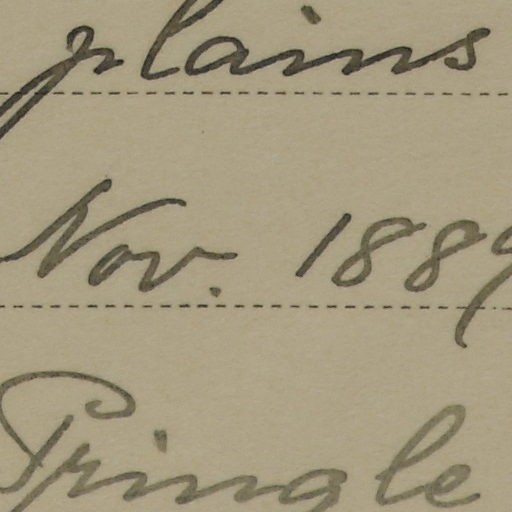 plains
Nov. 1889
Pringle